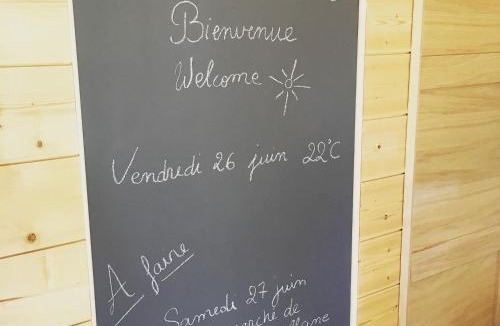 Bienvenue
Welcome
Vendredi 26 juin 22°C
A faire
Samedi 27 juin
marché de